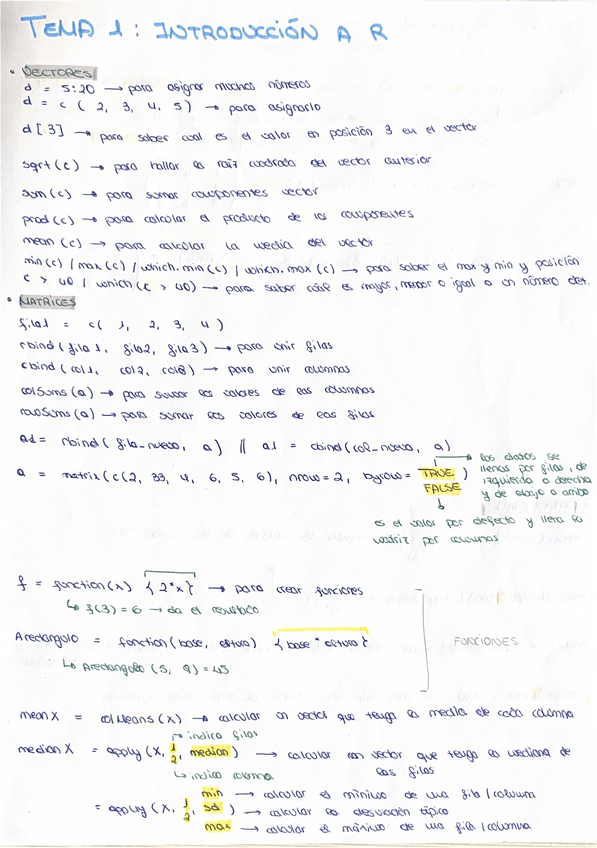 TEMA 1: INTRODUCCIÓN A R
• VECTORES
d = 5:20 → para asignar muchos números
d = c ( 2, 3, 4, 5 ) → para asignarlo
d[3] → para saber cual es el valor en posición 3 en el vector
sqrt(c) → para hallar la raíz cuadrada del vector anterior
sum(c) → para sumar componentes vector
prod(c) → para calcular el producto de los componentes
mean(c) → para calcular la media del vector
min(c) / max(c) / which.min(c) / which.max(c) → para saber el max y min y posición
c > 40 / which(c > 40) → para saber cuál es mayor, menor o igual a un número det.
• MATRICES
fila1 = c( 1, 2, 3, 4 )
rbind(fila1, fila2, fila3) → para unir filas
cbind(col1, col2, col3) → para unir columnas
colSums(a) → para sumar los valores de las columnas
rowSums(a) → para sumar los valores de las filas
a1 = rbind(fila_nueva, a) || a1 = cbind(col_nueva, a)
a = matrix(c(2, 33, 4, 6, 5, 6), nrow=2, byrow= TRUE )
FALSE
→ los datos se
llenas por filas, de
izquierda a derecha
y de abajo a arriba
es el valor por defecto y llena la
matriz por columnas
f = function(x) { 2*x } → para crear funciones
↳ f(3) = 6 → da el resultado
Arectangulo = function(base, altura) { base * altura }
↳ Arectangulo (5, 9) = 45
FUNCIONES
meanX = colMeans(x) → calcular un vector que tenga la media de cada columna
→ indica filas
medianX = apply(X, 1/2, median) → calcular un vector que tenga la mediana de
las filas
↳ indica columna
min → calcular el mínimo de una fila / columna
= apply(X, 1/2, sd ) → calcular la desviación típica
max → calcular el máximo de una fila / columna